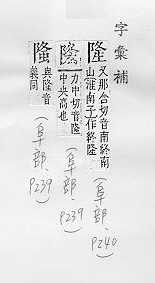 字彙補
隆 又那合切音南終南山淮南子作終隆
(阜部、P240)
𨻱 力中切音隆中央高也
(阜部、P239)
隆 與隆音義同
(阜部、P239)